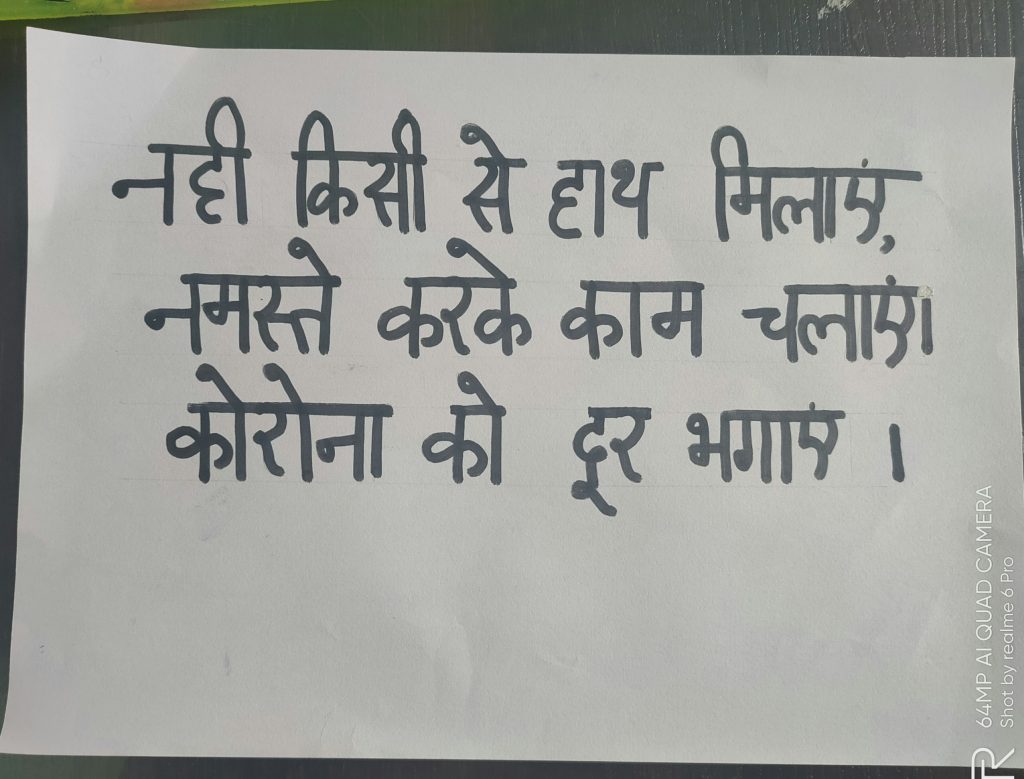 नही किसी से हाथ मिलाएं,
नमस्ते करके काम चलाएं।
कोरोना को दूर भगाएं ।
64MP AI QUAD CAMERA
Shot by realme 6 Pro
R